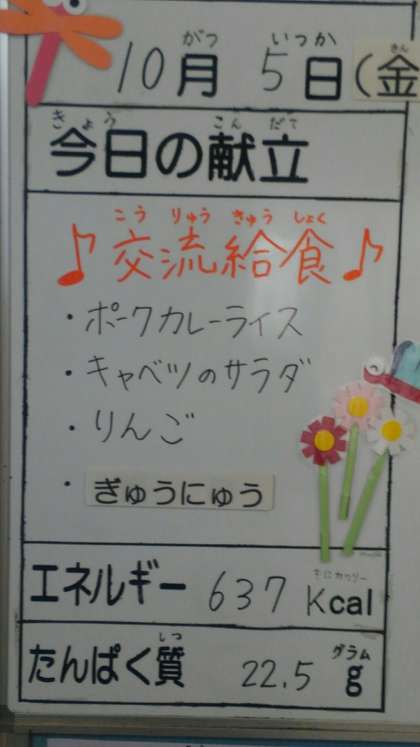 がつ いつか きん
10月 5日(金
きょう こんだて
今日の献立
こうりゅうきゅうしょく
♪交流給食♪
・ポークカレーライス
・キャベツのサラダ
・りんご
・ぎゅうにゅう
キロカロリー
エネルギー 637 Kcal
しつ グラム
たんぱく質 22.5 g